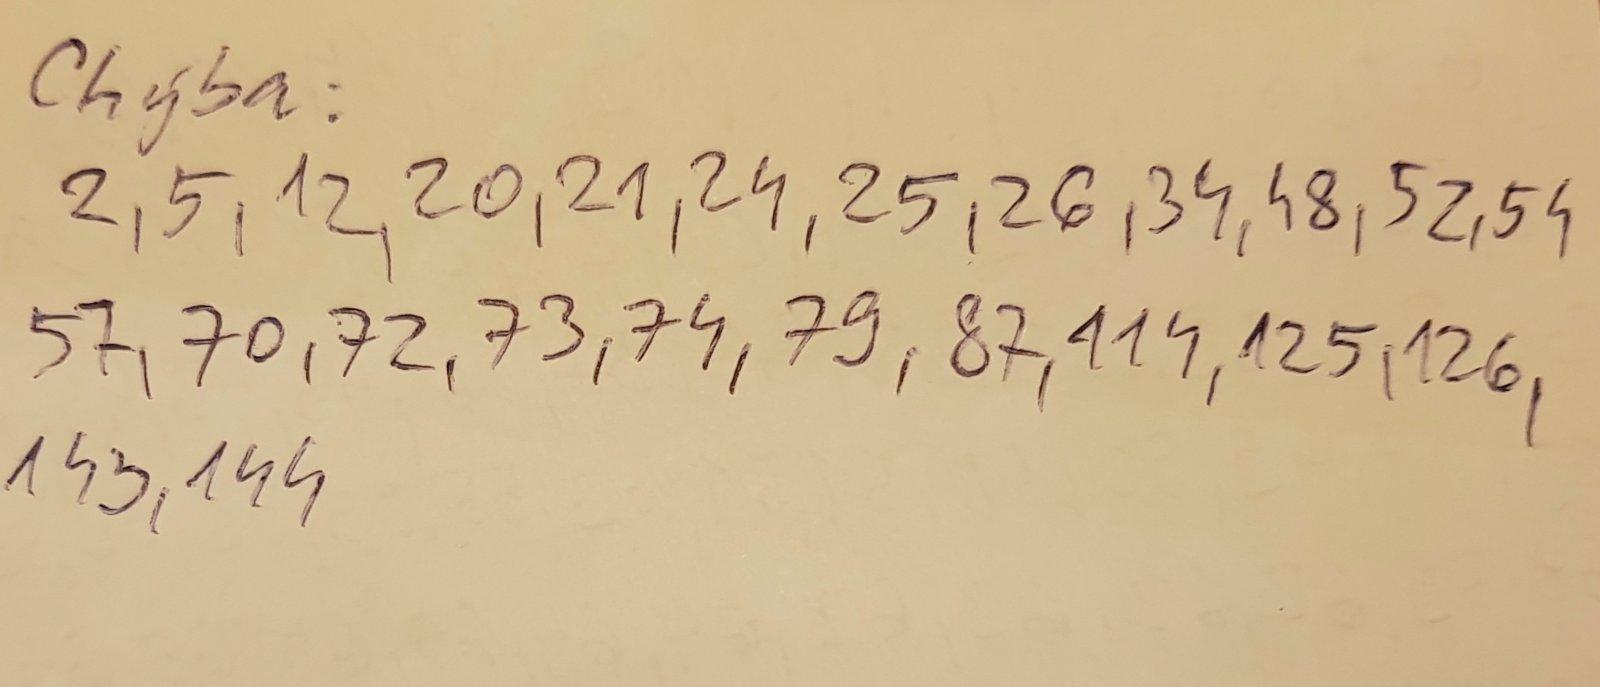 Chyba:
2, 5, 12, 20, 21, 24, 25, 26, 34, 48, 52, 54
57, 70, 72, 73, 74, 79, 87, 114, 125, 126,
143, 144